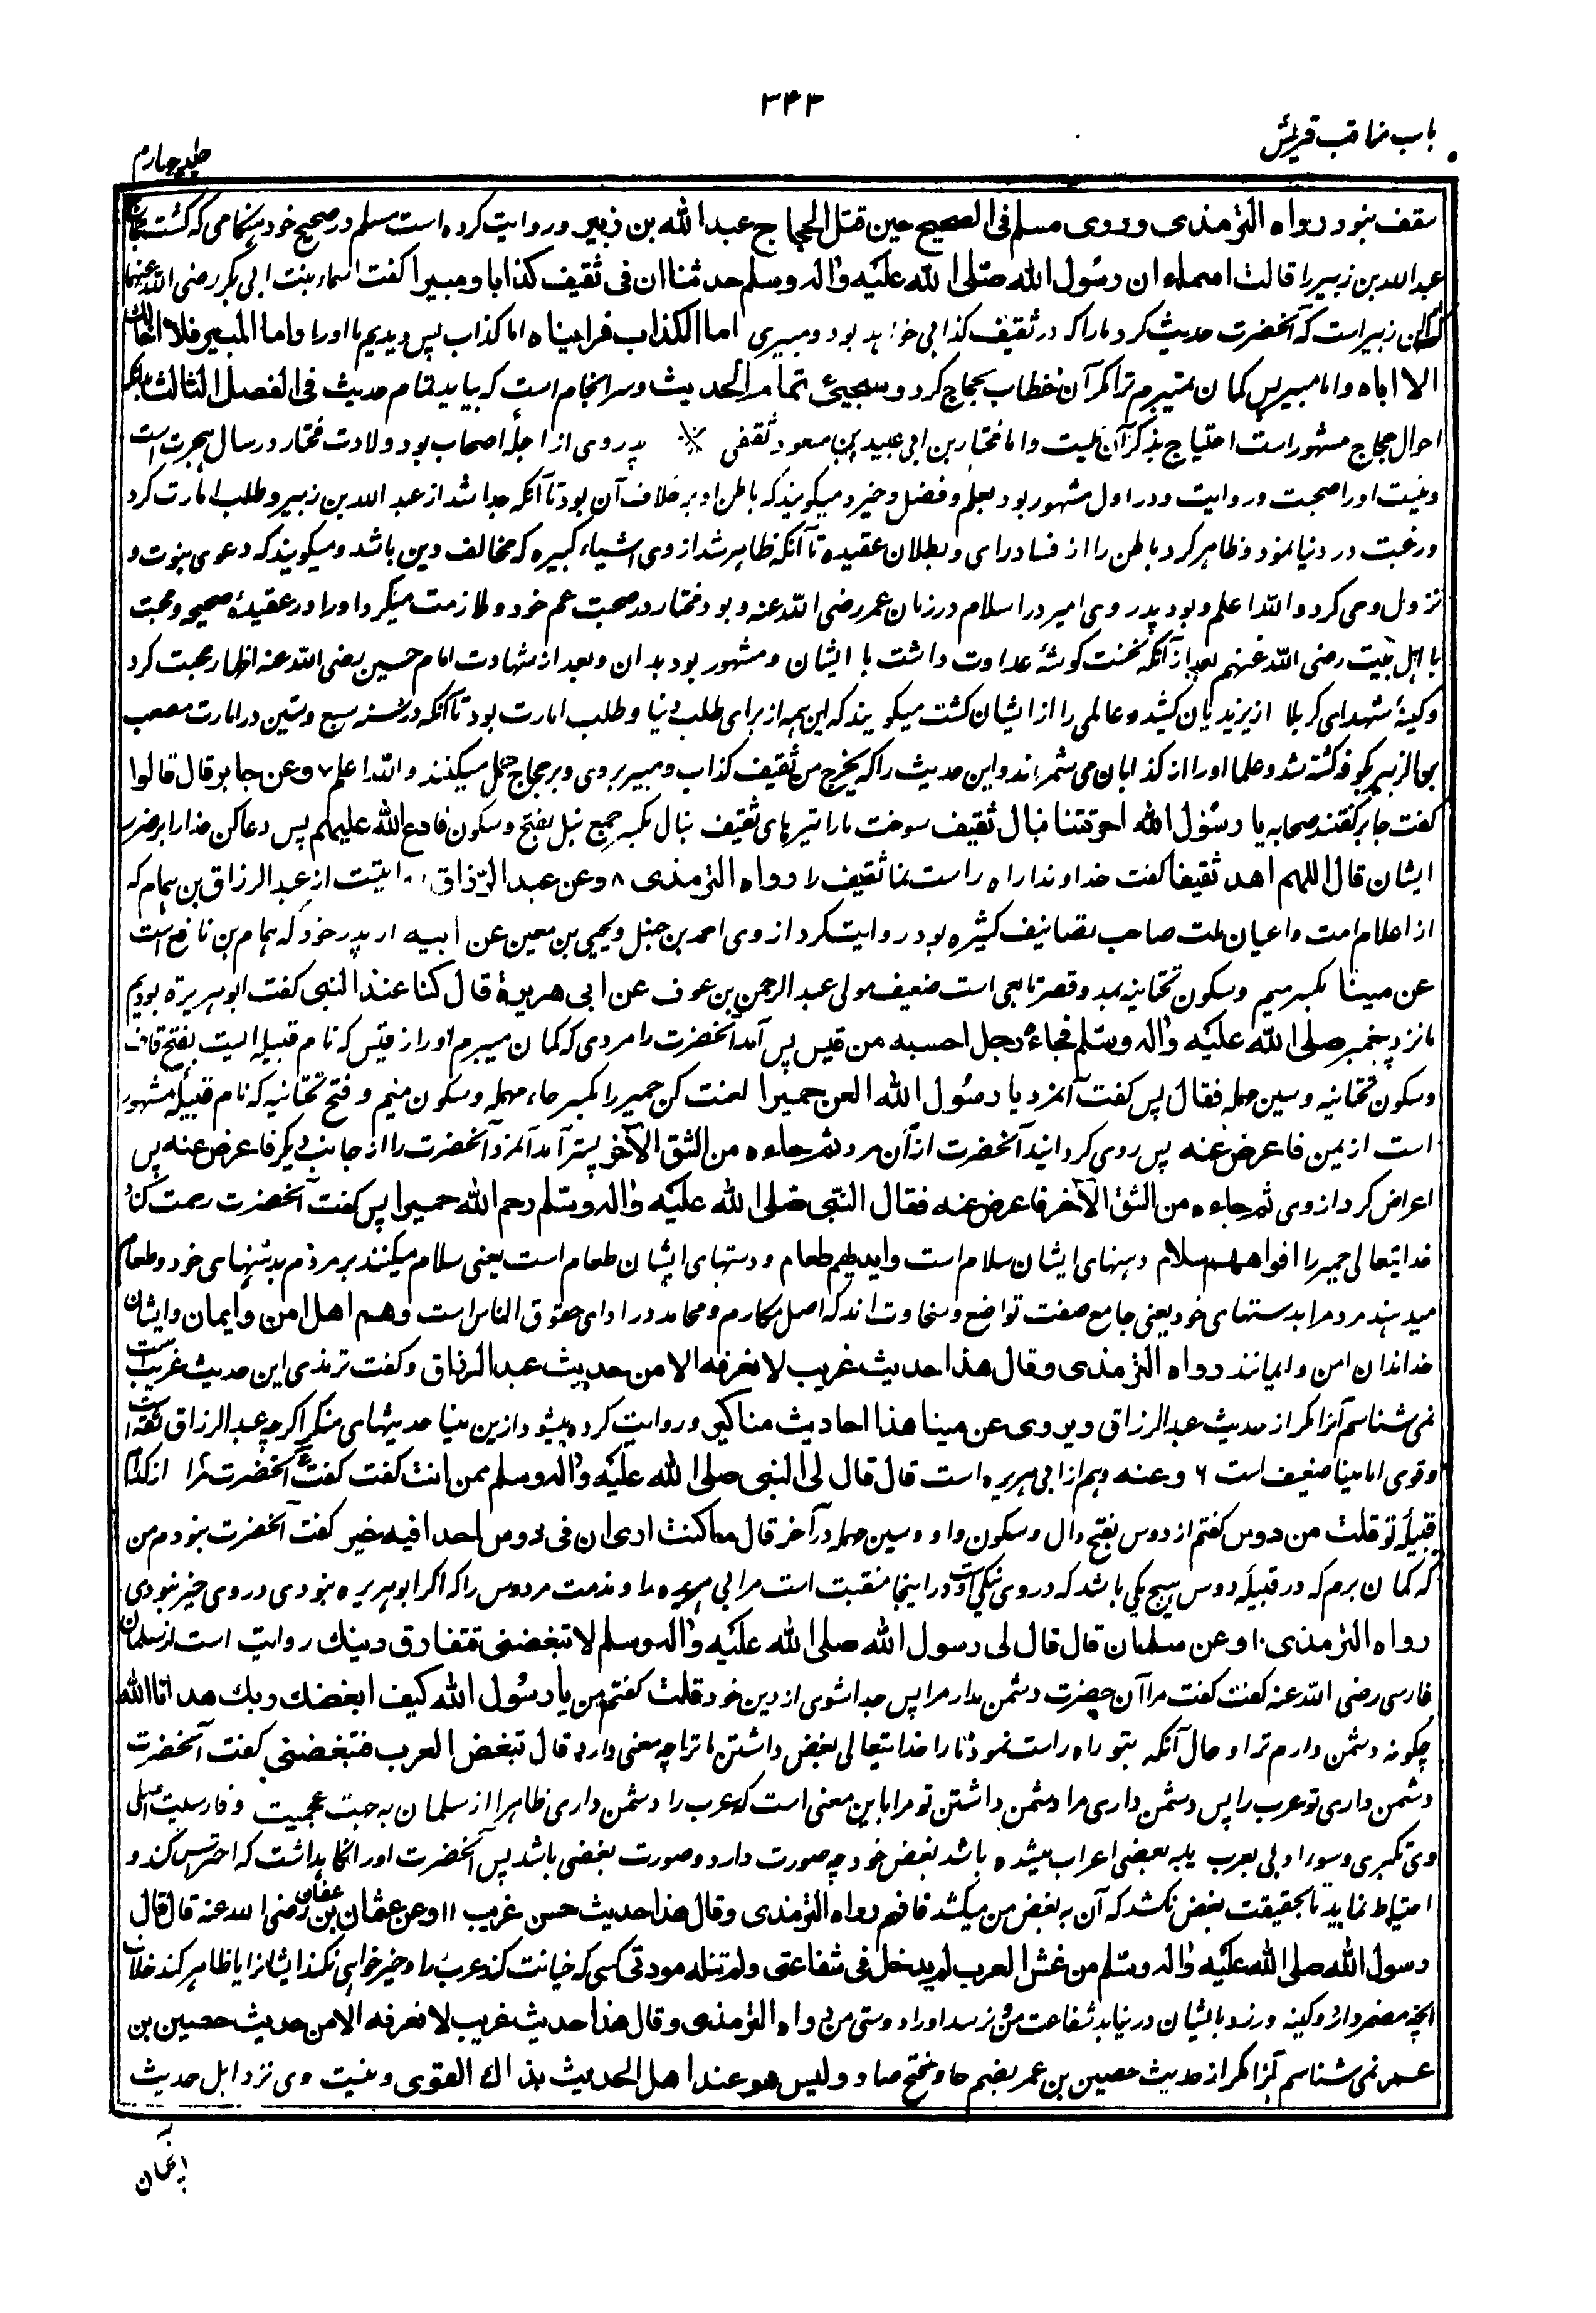 ۳۴۳
باب مناقب قریش
جلد چهارم
سقف بنود رواه الترمذی وروی مسلم فی الصحیح حین قتل الحجاج عبدالله بن زبیر وروایت کرده است مسلم در صحیح خود هنگامی که کشت حجاج
عبدالله بن زبیر را قالت اسماء ان رسول الله صلی الله علیه واله وسلم حدثنا ان فی ثقیف کذابا ومبیرا کفت اسماء بنت ابی بکر رضی الله عنهما
ابن زبیر است که آنحضرت حدیث کرد مارا که در ثقیف کذابی خواهد بود ومبیری اما الکذاب فرایناه اما کذاب پس دیدیم ما اورا واما المبیر فلا اخالک
الا ایاه واما مبیر پس کمان نمیبرم ترا مکر آن خطاب بحجاج کرد وسیجیٔ تمام الحدیث وسرانجام است که بیاید تمام حدیث فی الفصل الثالث بدانکه
احوال حجاج مشهور است احتیاج بذکر آن نیست واما مختار بن ابی عبید بن مسعود ثقفی پدر وی از اجلهٔ اصحاب بود ولادت مختار در سال هجرت است
ونیست اورا صحبت وروایت ودر اول مشهور بود بعلم وفضل وخیر ومیکویند که باطن او بر خلاف آن بود تا آنکه جدا شد از عبد الله بن زبیر وطلب امارت کرد
ورغبت در دنیا نمود وظاهر کرد باطن را از فساد رای وبطلان عقیده تا آنکه ظاهر شد از وی اشیاء کبیره که مخالف دین باشد ومیکویند که دعوی نبوت و
نزول وحی کرد والله اعلم وبود پدر وی امیر در اسلام در زمان عمر رضی الله عنه وبود مختار در صحبت عم خود وملازمت میکرد اورا در عقیدهٔ صحیحه ومحبت
با اهل بیت رضی الله عنهم بعد از آنکه نخست کوشهٔ عداوت داشت با ایشان ومشهور بود بدان وبعد از شهادت امام حسین رضی الله عنه اظهار محبت کرد
وکینهٔ شهدای کربلا از یزیدیان کشید وعالمی را از ایشان کشت میکویند که این همه از برای طلب دنیا وطلب امارت بود تا آنکه در سنه سبع وستین در امارت مصعب
بن الزبیر بکوفه کشته شد وعلما اورا از کذابان می شمرند واین حدیث را که یخرج من ثقیف کذاب ومبیر بر وی وبر حجاج حمل میکنند والله اعلم ۷ وعن جابر قال قالوا
کفت جابر کفتند صحابه یا رسول الله احرقتنا نبال ثقیف سوخت مارا تیرهای ثقیف نبال بکسر جمع نبل بفتح وسکون فادع الله علیهم پس دعا کن خدا را بر ضرر
ایشان قال اللهم اهد ثقیفا کفت خداوندا راه راست نما ثقیف را رواه الترمذی ۸ وعن عبد الرزاق روایتست از عبد الرزاق بن همام که
از اعلام امت واعیان ملت صاحب تصانیف کثیره بود روایت کرد از وی احمد بن حنبل ویحیی بن معین عن ابیه از پدر خود که همام بن نافع است
عن مینا بکسر میم وسکون تحتانیه بمد وقصر تابعی است ضعیف مولی عبد الرحمن بن عوف عن ابی هریرة قال کنا عند النبی کفت ابو هریره بودیم
ما نزد پیغمبر صلی الله علیه واله وسلم فجاءه رجل احسبه من قیس پس آمد آنحضرت را مردی که کمان میبرم اورا از قیس که نام قبیله ایست بفتح قاف
وسکون تحتانیه وسین مهمله فقال پس کفت آنمرد یا رسول الله العن حمیرا لعنت کن حمیر را بکسر حاء مهمله وسکون میم وفتح تحتانیه که نام قبیلهٔ مشهور
است از یمن فاعرض عنه پس روی کردانید آنحضرت از آن مرد ثم جاءه من الشق الآخر پستر آمد آنمرد آنحضرت را از جانب دیکر فاعرض عنه پس
اعراض کرد از وی ثم جاءه من الشق الآخر فاعرض عنه فقال النبی صلی الله علیه واله وسلم رحم الله حمیرا پس کفت آنحضرت رحمت کناد
خدایتعالی حمیر را افواههم سلام دهنهای ایشان سلام است وایدیهم طعام ودستهای ایشان طعام است یعنی سلام میکنند بر مردم بدهنهای خود وطعام
میدهند مردم را بدستهای خود یعنی جامع صفت تواضع وسخاوت اند که اصل مکارم ومحامد در ادای حقوق الناس است وهم اهل امن وایمان وایشان
خداوندان امن وایمانند رواه الترمذی وقال هذا حدیث غریب لا نعرفه الا من حدیث عبد الرزاق وکفت ترمذی این حدیث غریب است
نمی شناسم آنرا مکر از حدیث عبد الرزاق ویروی عن مینا هذا احادیث مناکیر وروایت کرده میشود ازین مینا حدیثهای منکر اکرچه عبد الرزاق ثقه است
وقوی اما مینا ضعیف است ۶ وعنه وهم از ابی هریره است قال قال لی النبی صلی الله علیه واله وسلم ممن انت کفت کفت آنحضرت مرا از کدام
قبیلهٔ تو قلت من دوس کفتم از دوس بفتح دال وسکون واو وسین مهمله در آخر قال ما کنت اری ان فی دوس احدا فیه خیر کفت آنحضرت بنودم من
که کمان برم که در قبیلهٔ دوس هیچ یکی باشد که در وی نیکی است ودر اینجا منقبت است مر ابی هریره را ومذمت مر دوس را که اکر ابو هریره بنودی در وی خیر نبودی
رواه الترمذی ۱۰ وعن سلمان قال قال لی رسول الله صلی الله علیه واله وسلم لا تبغضنی فتفارق دینک روایت است از سلمان
فارسی رضی الله عنه کفت کفت مرا آن حضرت دشمن مدار مرا پس جدا شوی از دین خود قلت کفتم من یا رسول الله کیف ابغضک وبک هدانا الله
چکونه دشمن دارم ترا وحال آنکه بتو راه راست نمود مارا خدایتعالی بغض داشتن ما ترا چه معنی دارد قال تبغض العرب فتبغضنی کفت آنحضرت
دشمن داری تو عرب را پس دشمن داری مرا دشمن داشتن تو مرا باین معنی است که عرب را دشمن داری ظاهرا از سلمان به جهت عجمیت وفارسیت اصلی
وی تکبری وسوء ادبی بعرب یا به بعضی اعراب میشده باشد بغض خود چه صورت دارد وصورت بغضی باشد پس آنحضرت اورا نکاهداشت که احتراس کند و
احتیاط نماید تا بحقیقت بغض نکشد که آن به بغض من میکشد فافهم رواه الترمذی وقال هذا حدیث حسن غریب ۱۱ وعن عثمان بن عفان رضی الله عنه قال قال
رسول الله صلی الله علیه واله وسلم من غش العرب لم یدخل فی شفاعتی ولم تنله مودتی کسی که خیانت کند عرب را وخیر خواهی نکند ایشانرا یا ظاهر کند خلاف
آنچه مضمر دارد وکینه ورزد بایشان در نیاید شفاعت من ونرسد اورا دوستی من رواه الترمذی وقال هذا حدیث غریب لا نعرفه الا من حدیث حصین بن
عمر نمی شناسم آنرا مکر از حدیث حصین بن عمر بضم حا وفتح صاد ولیس هو عند اهل الحدیث بذاک القوی ونیست وی نزد اهل حدیث